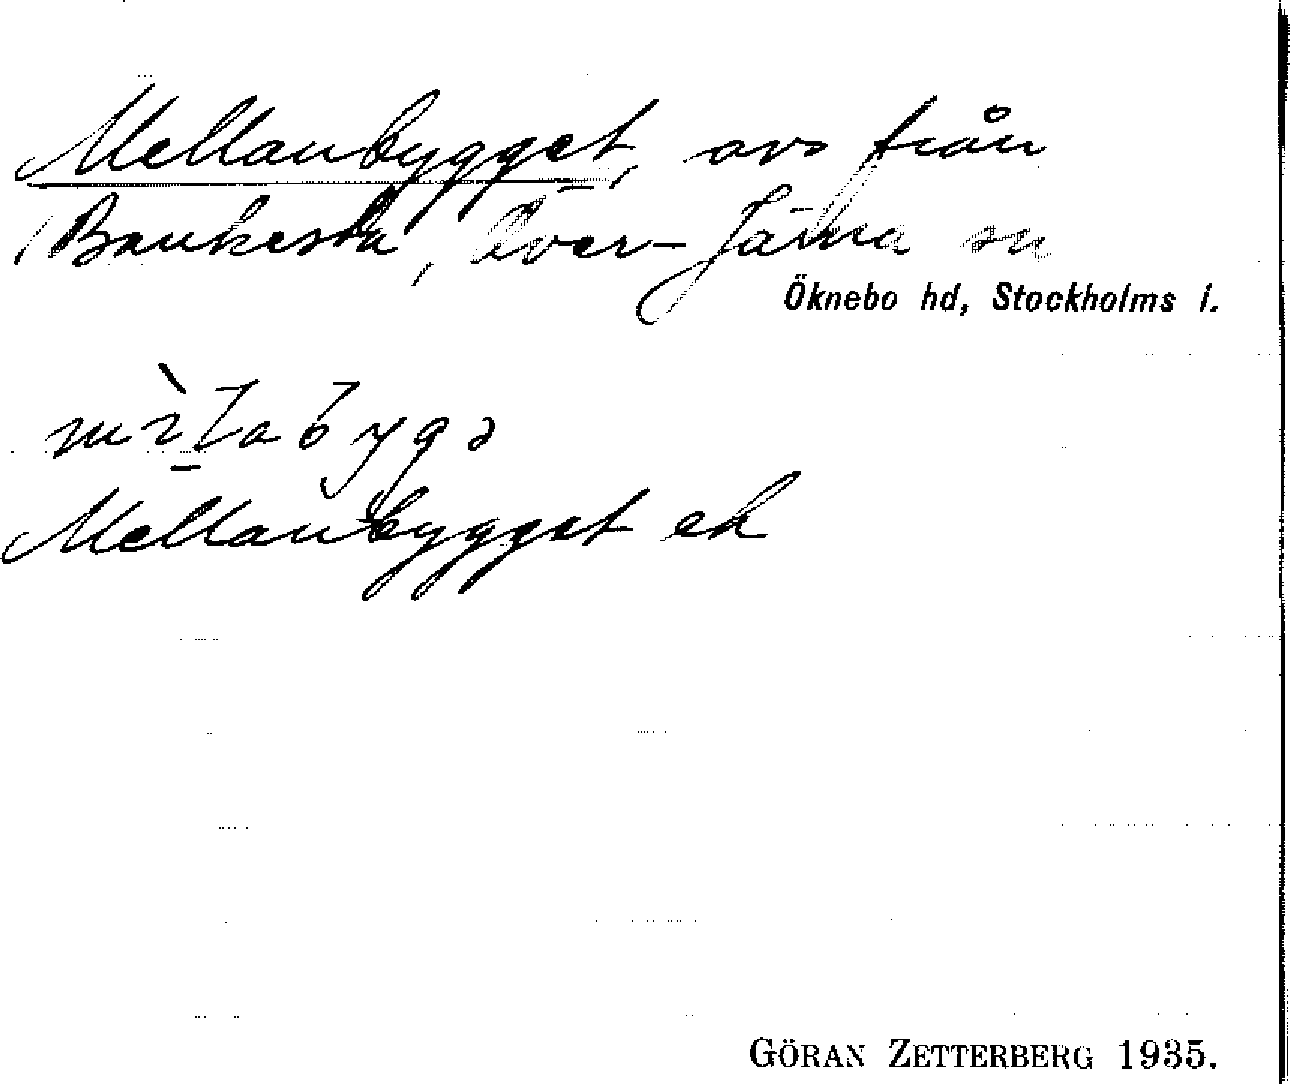 Mellanbygget, avs från
Bankesta, Över-Järna sn
Öknebo hd, Stockholms l.
Mellanbygget ek
GÖRAN ZETTERBERG 1935.